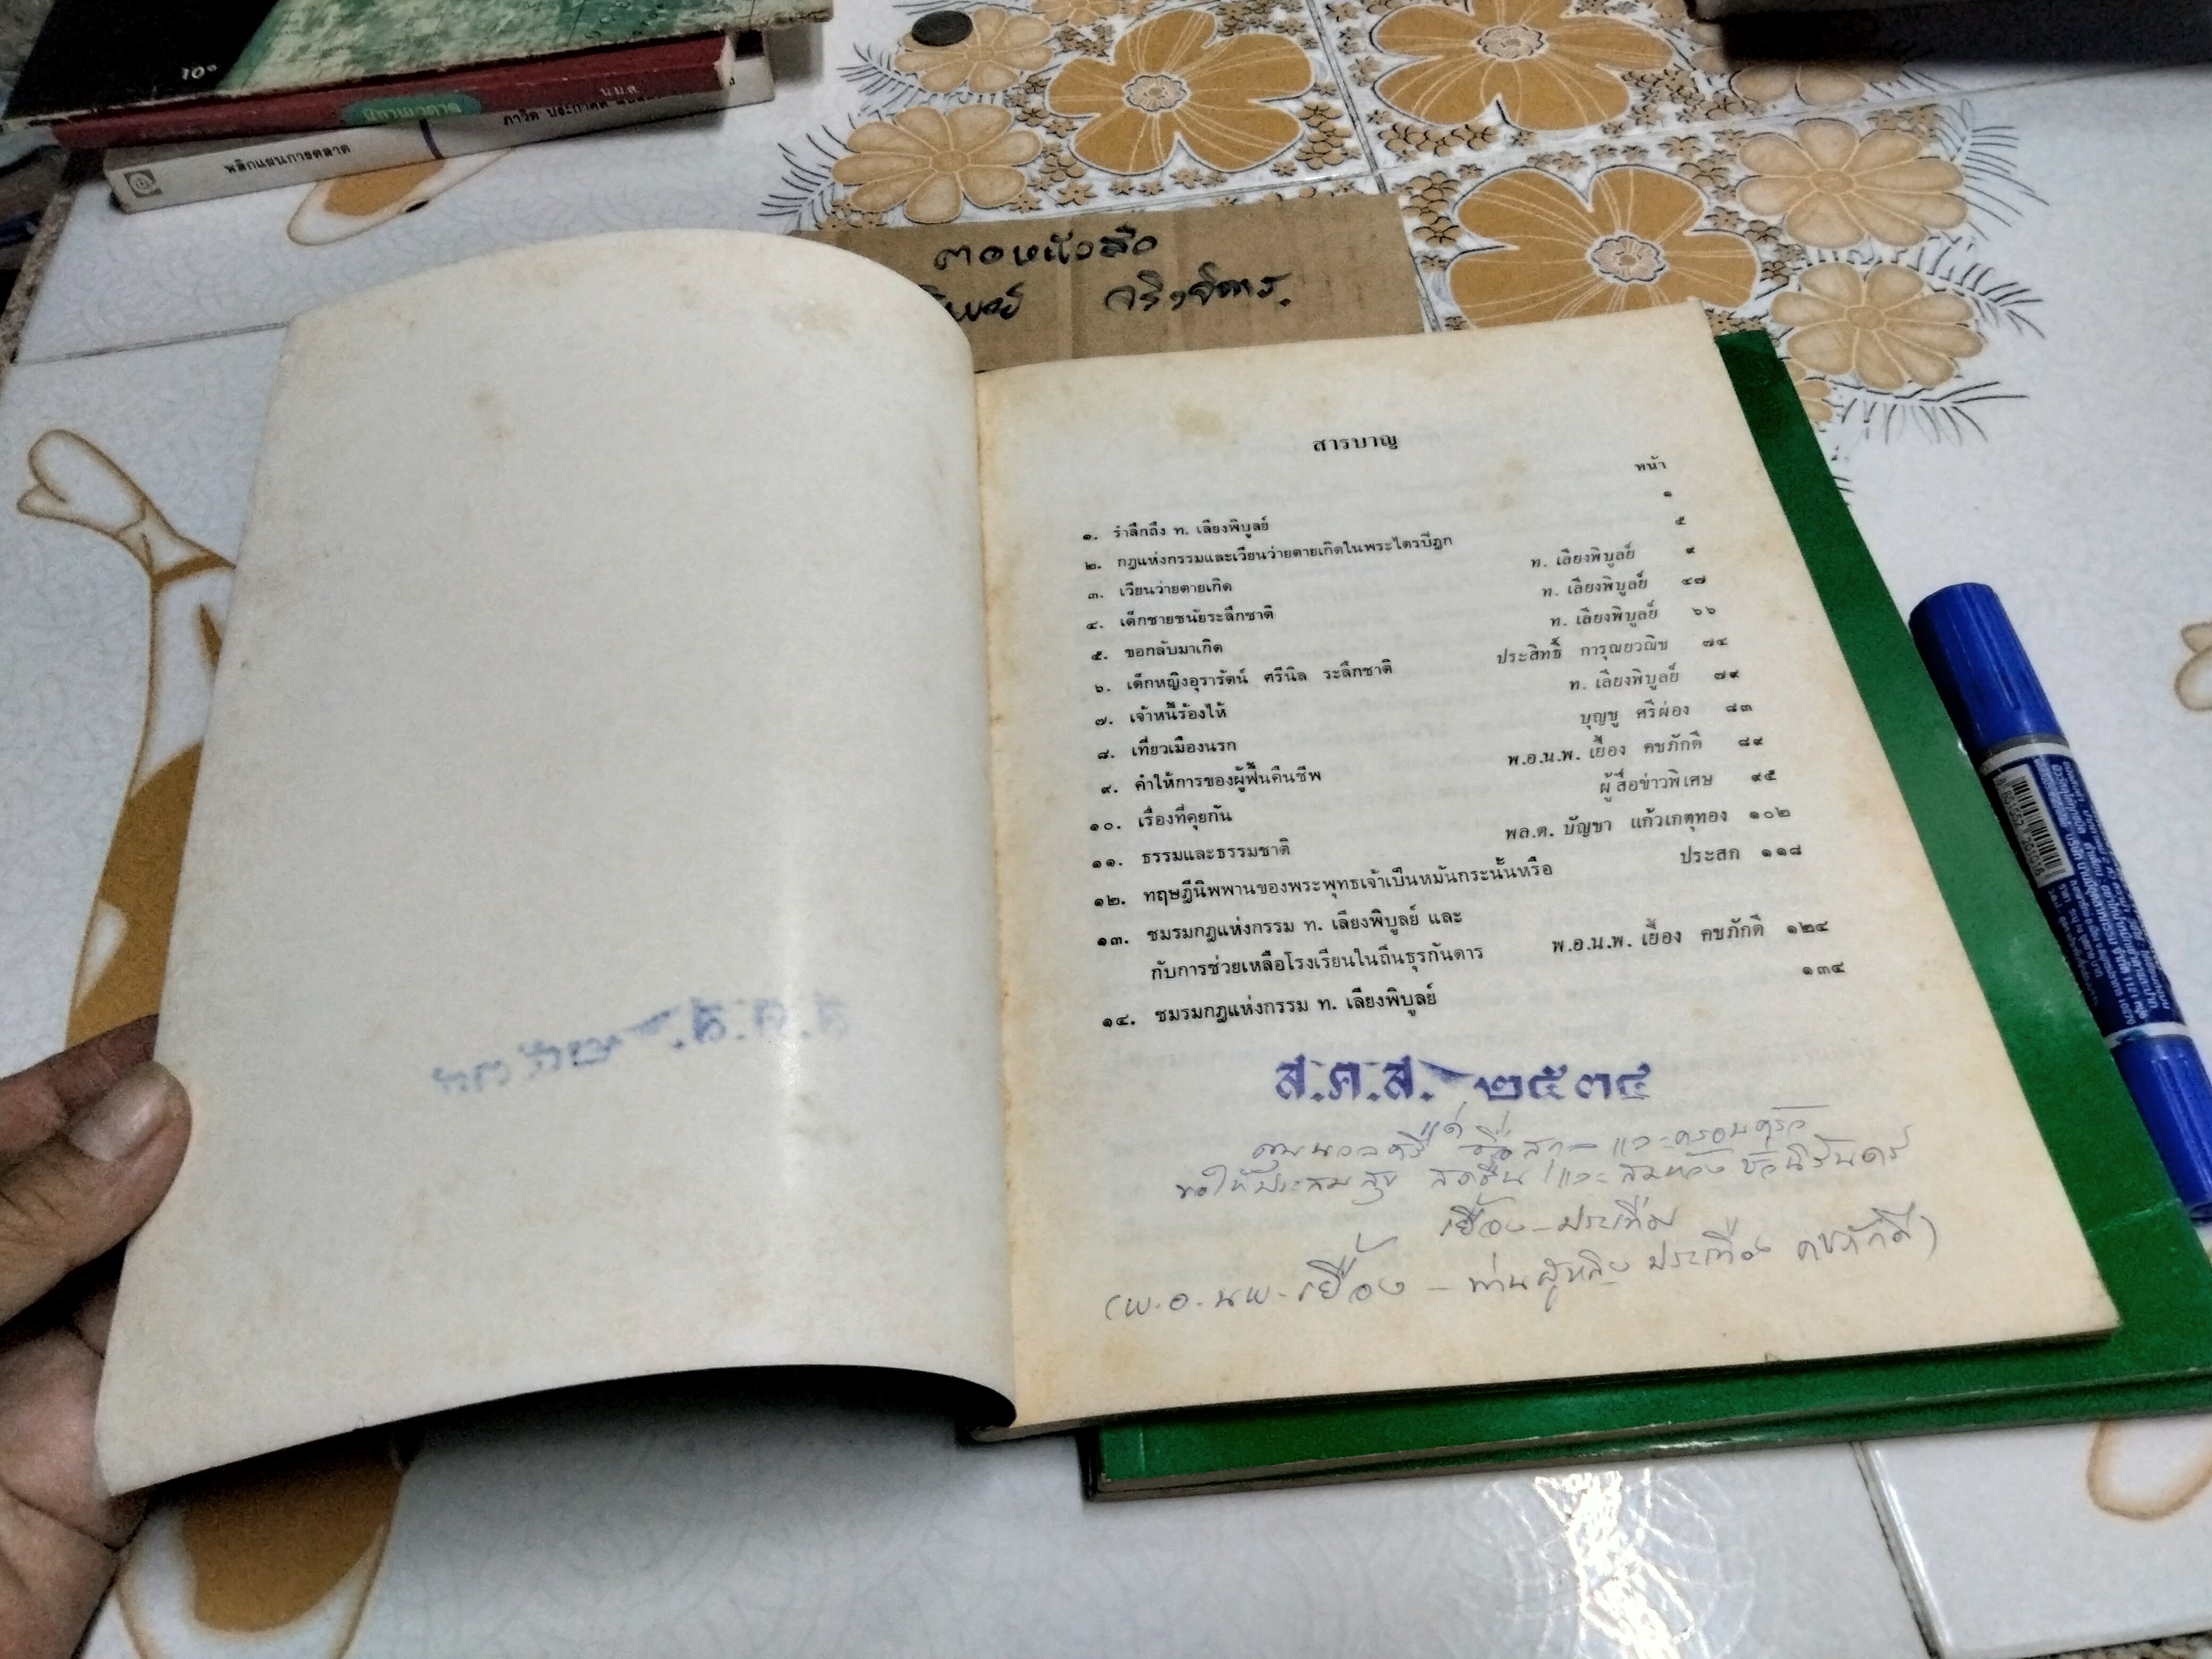 10°
น.ม.ส.
นิทานเวตาล
พลิกแผนการตลาด
ภาวิต ประภาคดี
ตอหนังสือ
จริงจิตร.
สารบาญ
หน้า
๑. รำลึกถึง ท. เลียงพิบูลย์ ๑
๒. กฎแห่งกรรมและเวียนว่ายตายเกิดในพระไตรปิฎก ๕
๓. เวียนว่ายตายเกิด ท. เลียงพิบูลย์ ๙
๔. เด็กชายชนัยระลึกชาติ ท. เลียงพิบูลย์ ๔๗
๕. ขอกลับมาเกิด ท. เลียงพิบูลย์ ๖๖
๖. เด็กหญิงอุรารัตน์ ศรีนิล ระลึกชาติ ประสิทธิ์ การุณยวณิช ๗๔
๗. เจ้าหนี้ร้องไห้ ท. เลียงพิบูลย์ ๗๙
๘. เที่ยวเมืองนรก บุญชู ศรีผ่อง ๘๓
๙. คำให้การของผู้ฟื้นคืนชีพ พ.อ.น.พ. เยื้อง คชภักดี ๘๙
๑๐. เรื่องที่คุยกัน ผู้สื่อข่าวพิเศษ ๙๕
๑๑. ธรรมและธรรมชาติ พล.ต. บัญชา แก้วเกตุทอง ๑๐๒
๑๒. ทฤษฎีนิพพานของพระพุทธเจ้าเป็นหมันกระนั้นหรือ ประสก ๑๑๘
๑๓. ชมรมกฎแห่งกรรม ท. เลียงพิบูลย์ และ
กับการช่วยเหลือโรงเรียนในถิ่นธุรกันดาร พ.อ.น.พ. เยื้อง คชภักดี ๑๒๔
๑๔. ชมรมกฎแห่งกรรม ท. เลียงพิบูลย์ ๑๓๔
ส.ค.ส. ๒๕๓๔
แด่
และครอบครัว
ขอให้ประสบสุข สดชื่น และสมหวัง ชั่วนิรันดร์
เยื้อง - ประเทือง
(พ.อ.นพ.เยื้อง - ท่านผู้หญิง ประเทือง คชภักดี)